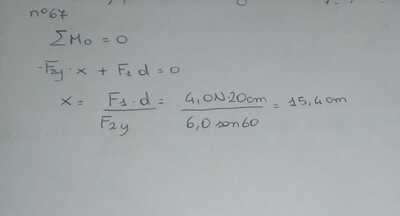 n°67
ΣM₀ = 0
-F₂y · x + F₁ d = 0
x = F₁ · d / F₂y = 4,0N·20cm / 6,0 sen60 = 15,4 cm